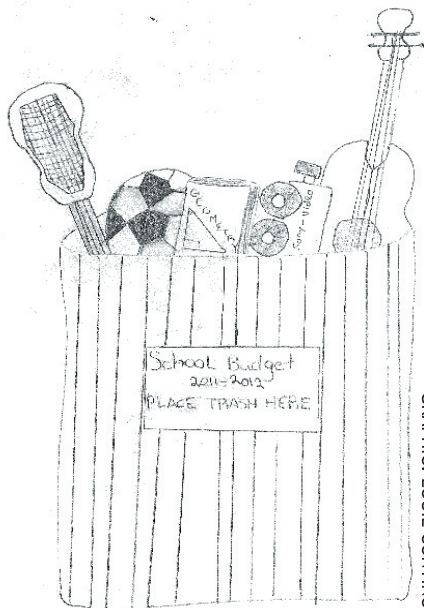 GEOMETRY
Sony-video
School Budget
2011-2012
PLACE TRASH HERE